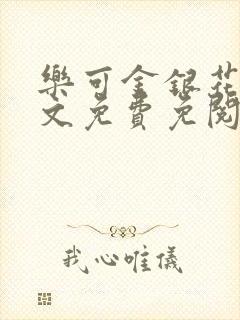 樂可金銀花
文免費免閱
我心唯儀